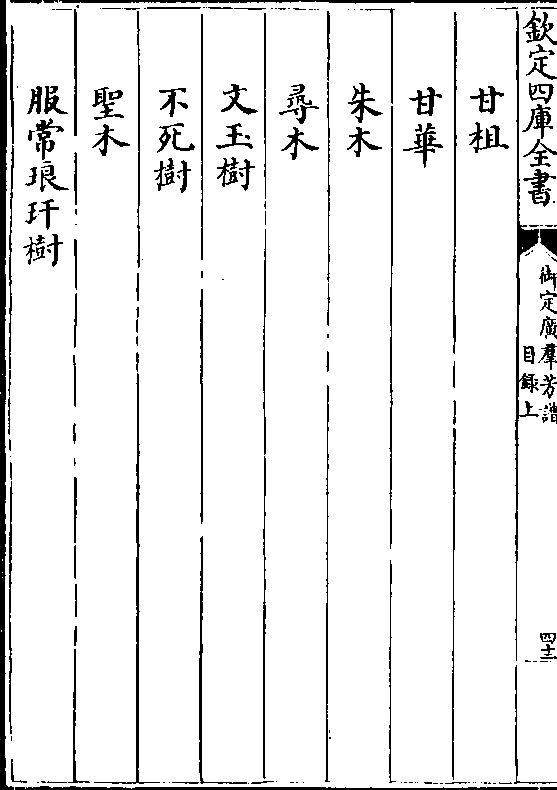 欽定四庫全書
御定廣羣芳譜
目録上
四十二
甘柤
甘華
朱木
尋木
文玉樹
不死樹
聖木
服常琅玕樹